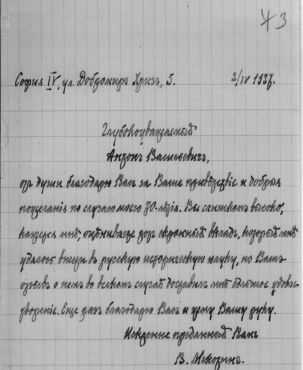 43
София IV, ул. Добромир Хриз, 5. 2/IV 1937.
Глубокоуважаемый
Антон Васильевич,
от души благодарю Вас за Ваше приветствие и добрыя
пожелания по случаю моего 70-летия. Вы слишком высоко,
кажется мне, оцениваете тот скромный вклад, который мне
удалось внести в русскую историческую науку, но Ваш
отзыв о нем во всяком случае доставил мне большое удовле-
творение. Еще раз благодарю Вас и жму Вашу руку.
Искренне преданный Вам
В.